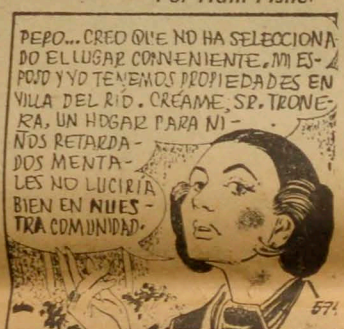 Por Ham Fisher
PERO... CREO QUE NO HA SELECCIONA
DO EL LUGAR CONVENIENTE. MI ES-
POSO Y YO TENEMOS PROPIEDADES EN
VILLA DEL RÍO. CRÉAME, SR. TRONE-
RA, UN HOGAR PARA NI-
ÑOS RETARDA-
DOS MENTA-
LES NO LUCIRIA
BIEN EN NUES-
TRA COMUNIDAD.